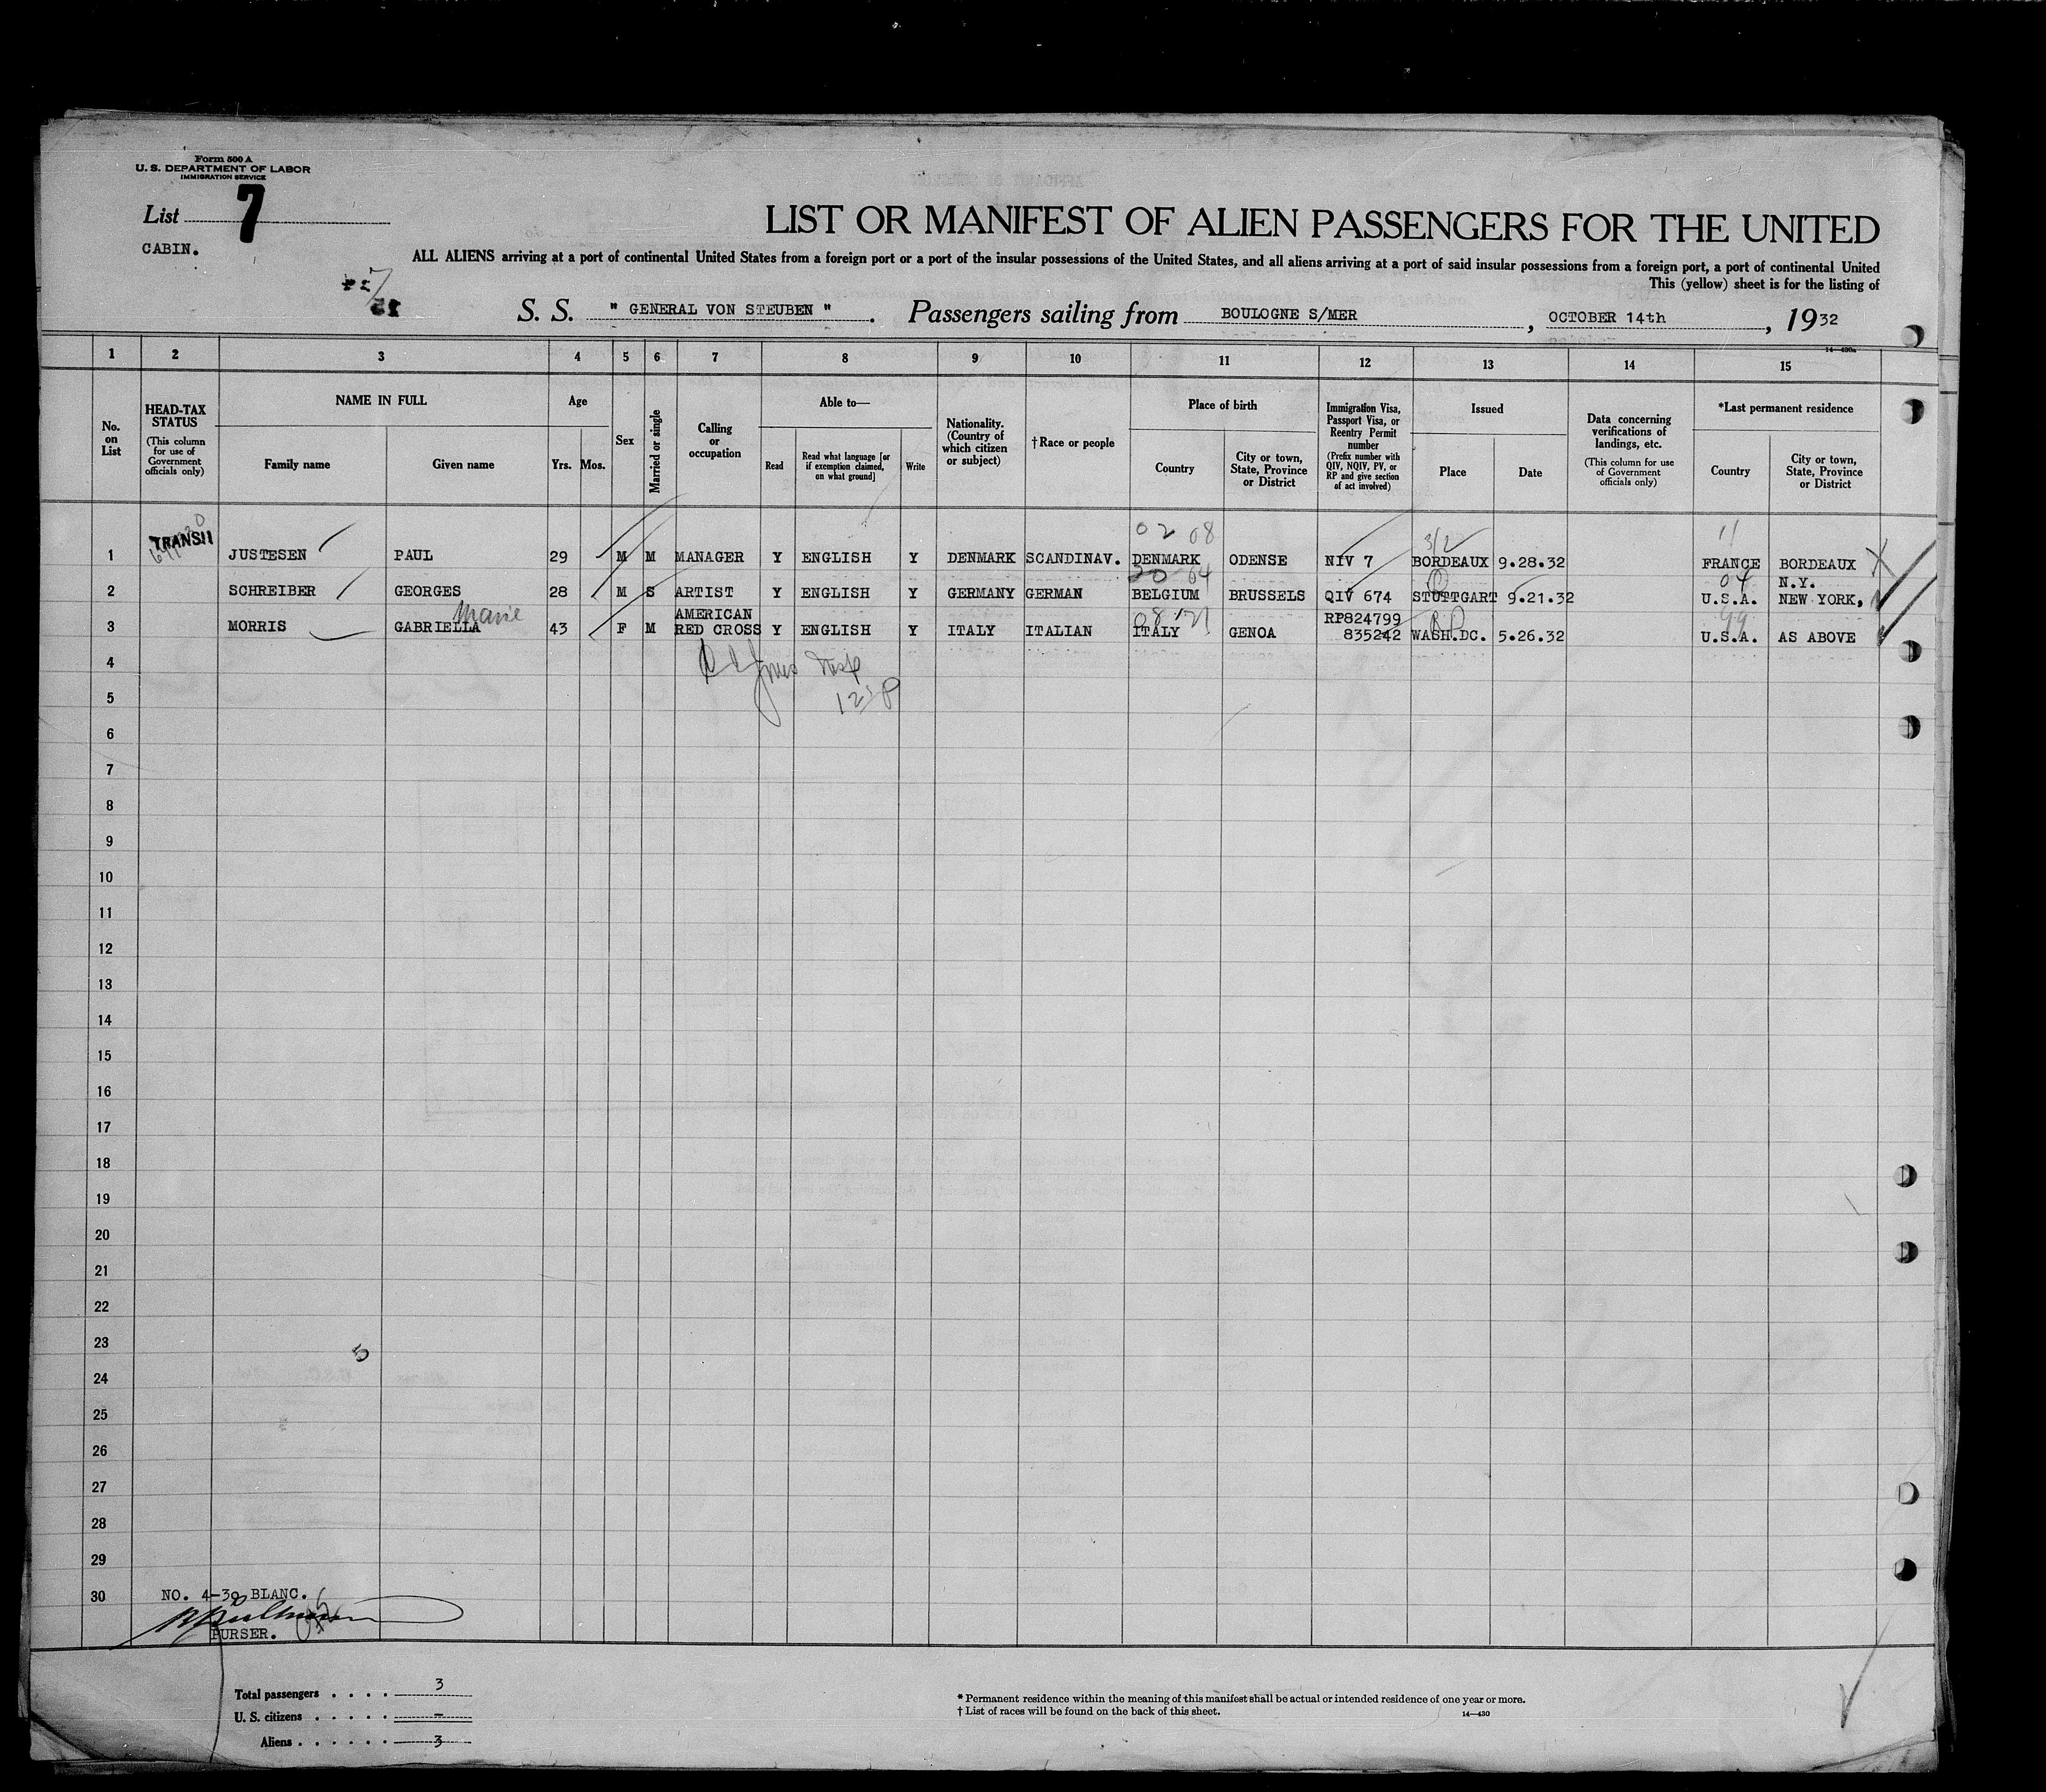 Form 500 A
U. S. DEPARTMENT OF LABOR
IMMIGRATION SERVICE
List 7
CABIN.
LIST OR MANIFEST OF ALIEN PASSENGERS FOR THE UNITED
ALL ALIENS arriving at a port of continental United States from a foreign port or a port of the insular possessions of the United States, and all aliens arriving at a port of said insular possessions from a foreign port, a port of continental United
This (yellow) sheet is for the listing of
S. S. " GENERAL VON STEUBEN " . Passengers sailing from BOULOGNE S/MER , OCTOBER 14th , 1932
14—430a
1 2 3 4 5 6 7 8 9 10 11 12 13 14 15
No. on List
HEAD-TAX STATUS
(This column for use of Government officials only)
NAME IN FULL
Family name Given name
Age
Yrs. Mos.
Sex
Married or single
Calling or occupation
Able to—
Read
Read what language [or if exemption claimed, on what ground]
Write
Nationality. (Country of which citizen or subject)
†Race or people
Place of birth
Country
City or town, State, Province or District
Immigration Visa, Passport Visa, or Reentry Permit number
(Prefix number with QIV, NQIV, PV, or RP and give section of act involved)
Issued
Place Date
Data concerning verifications of landings, etc.
(This column for use of Government officials only)
*Last permanent residence
Country
City or town, State, Province or District
02 08 3/2 11
TRANSIT
1 JUSTESEN PAUL 29 M M MANAGER Y ENGLISH Y DENMARK SCANDINAV. DENMARK ODENSE NIV 7 BORDEAUX 9.28.32 FRANCE BORDEAUX
04 N.Y.
2 SCHREIBER GEORGES 28 M S ARTIST Y ENGLISH Y GERMANY GERMAN BELGIUM BRUSSELS QIV 674 STUTTGART 9.21.32 U.S.A. NEW YORK,
Marie AMERICAN RP824799 RP 99
3 MORRIS GABRIELLA 43 F M RED CROSS Y ENGLISH Y ITALY ITALIAN ITALY GENOA 835242 WASH.DC. 5.26.32 U.S.A. AS ABOVE
4
5
6
7
8
9
10
11
12
13
14
15
16
17
18
19
20
21
22
23
5
24
25
26
27
28
29
30 NO. 4-30 BLANC.
PURSER.
Total passengers . . . . 3
U. S. citizens . . . . . -
Aliens . . . . . . 3
* Permanent residence within the meaning of this manifest shall be actual or intended residence of one year or more.
† List of races will be found on the back of this sheet.
14—430